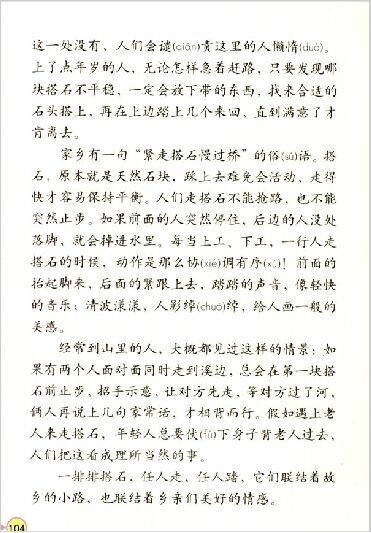 这一处没有，人们会谴(qiǎn)责这里的人懒惰(duò)。
上了点年岁的人，无论怎样急着赶路，只要发现哪
块搭石不平稳，一定会放下带的东西，找来合适的
石头搭上，再在上边踏上几个来回，直到满意了才
肯离去。
家乡有一句“紧走搭石慢过桥”的俗(sú)语。搭
石，原本就是天然石块，踩上去难免会活动，走得
快才容易保持平衡。人们走搭石不能抢路，也不能
突然止步。如果前面的人突然停住，后边的人没处
落脚，就会掉进水里。每当上工、下工，一行人走
搭石的时候，动作是那么协(xié)调有序(xù)！前面的
抬起脚来，后面的紧跟上去，踏踏的声音，像轻快
的音乐；清波漾漾，人影绰(chuò)绰，给人画一般的
美感。
经常到山里的人，大概都见过这样的情景：如
果有两个人面对面同时走到溪边，总会在第一块搭
石前止步，招手示意，让对方先走，等对方过了河，
俩人再说上几句家常话，才相背而行。假如遇上老
人来走搭石，年轻人总要伏(fú)下身子背老人过去，
人们把这看成理所当然的事。
一排排搭石，任人走，任人踏，它们联结着故
乡的小路，也联结着乡亲们美好的情感。
104